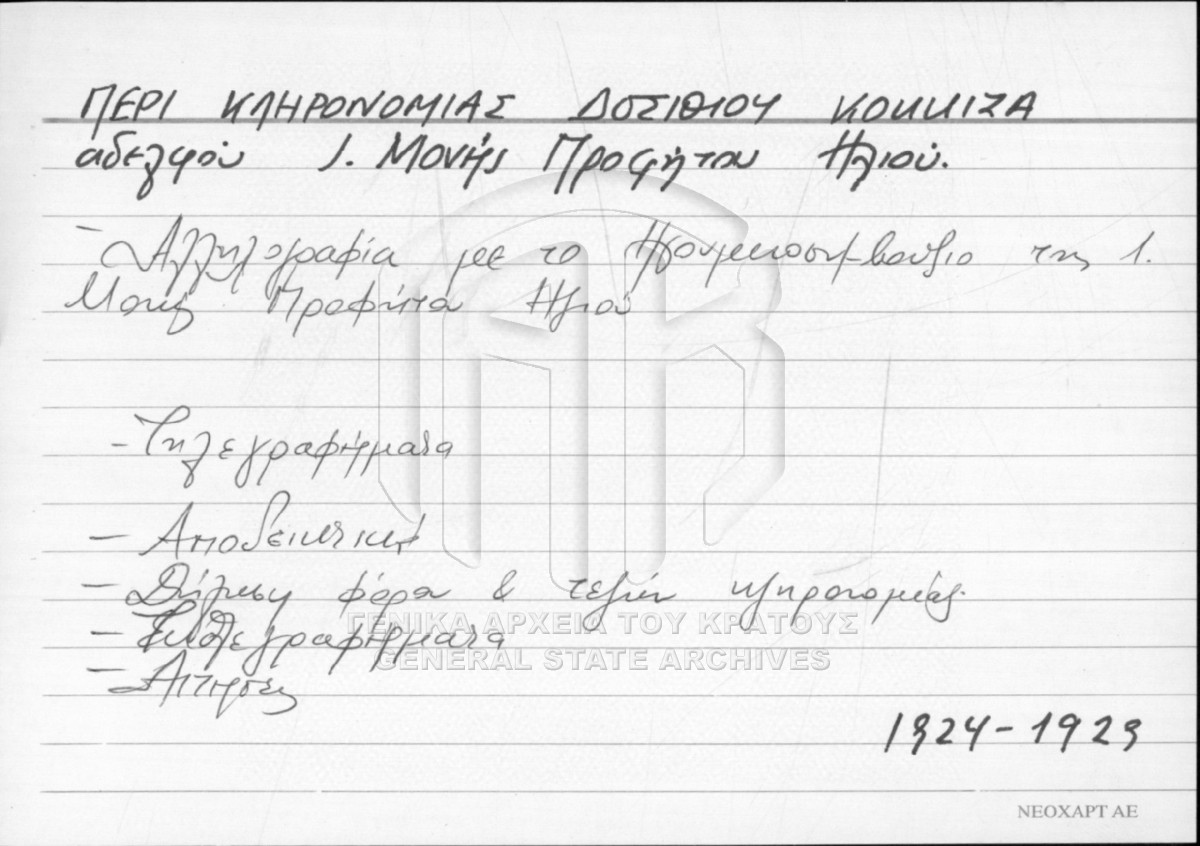 ΠΕΡΙ ΚΛΗΡΟΝΟΜΙΑΣ ΔΟΣΙΘΙΟΥ ΚΟΚΚΙΖΑ
αδελφού Ι. Μονής Προφήτου Ηλιού.
- Αλληλογραφία με το Ηγουμενοσυμβούλιο της Ι.
Μονής Προφήτα Ηλιού
- Τηλεγραφήματα
- Αποδεικτικά
- φόρου & τελών κληρονομίας.
- Τηλεγραφήματα
- Αιτήσεις
ΓΕΝΙΚΑ ΑΡΧΕΙΑ ΤΟΥ ΚΡΑΤΟΥΣ
GENERAL STATE ARCHIVES
1924-1929
ΝΕΟΧΑΡΤ ΑΕ